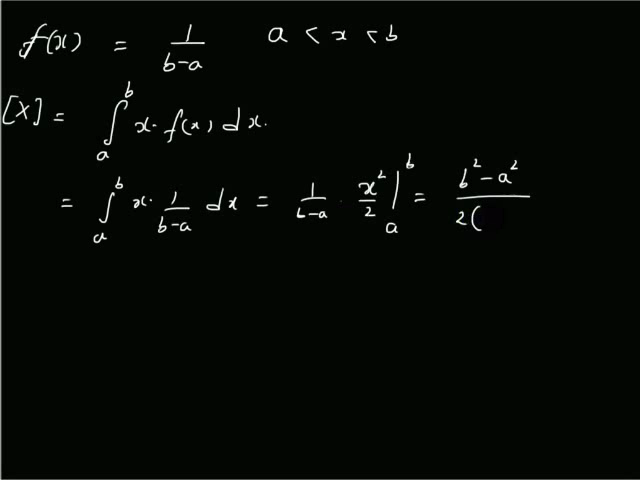 f(x) = 1/(b-a)    a < x < b
[X] = ∫_a^b x · f(x) dx.
= ∫_a^b x · 1/(b-a) dx = 1/(b-a) · x²/2 |_a^b = (b² - a²)/2(